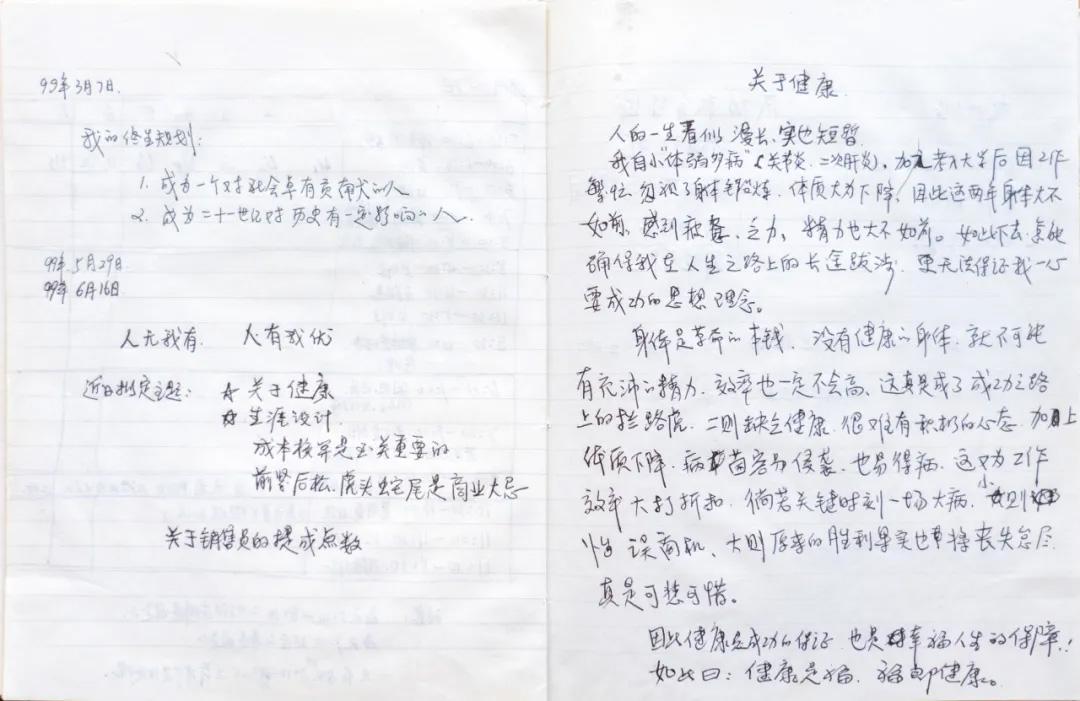 99年3月7日.
我的终生规划:
1. 成为一个对社会卓有贡献的人
2. 成为二十一世纪对历史有一定影响的人.
99年5月29日.
99年6月16日
人无我有. 人有我优
近日拟定主题: ☆关于健康
☆生涯设计
成本核算是至关重要的
前紧后松、虎头蛇尾是商业大忌
关于销售员的提成点数
关于健康.
人的一生看似漫长,实也短暂
我自小“体弱多病”(关节炎、二次肝炎),加之考入大学后因工作
繁忙,忽视了身体锻炼,体质大为下降,因此这两年身体大不
如前,感到疲惫、乏力、精力也大不如前。如此下去,怎能
确保我在人生之路上的长途跋涉,更无法保证我一心
要成功的思想理念。
身体是革命的本钱,没有健康的身体,就不可能
有充沛的精力,效率也一定不会高,这真是成了成功之路
上的拦路虎,二则缺乏健康,很难有积极的心态,加上
体质下降,病菌容易侵袭,也易得病,这又为工作
效率大打折扣,倘若关键时刻一场大病,小则
误商机,大则原来的胜利果实也将丧失怠尽,
真是可悲可惜。
因此健康是成功的保证,也是幸福人生的保障!
如此曰:健康是福,福即健康。